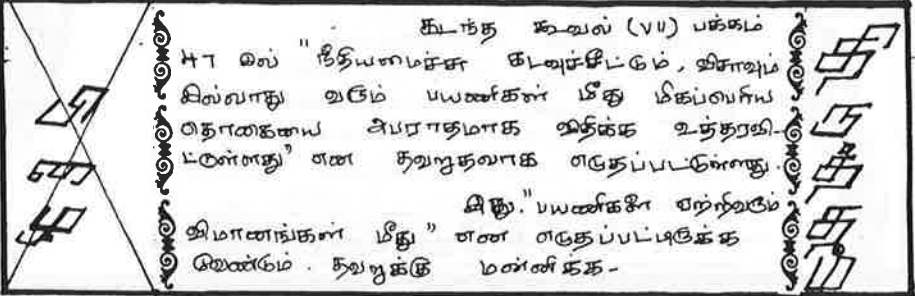 கடந்த கூவல் (VII) பக்கம்
47 இல் "நீதியமைச்சு கடவுச்சீட்டும், விசாவும்
இல்லாது வரும் பயணிகள் மீது மிகப்பெரிய
தொகையை அபராதமாக விதிக்க உத்தரவி-
ட்டுள்ளது" என தவறுதலாக எழுதப்பட்டுள்ளது.
இது. "பயணிகளை ஏற்றிவரும்
விமானங்கள் மீது" என எழுதப்பட்டிருக்க
வேண்டும். தவறுக்கு மன்னிக்க-